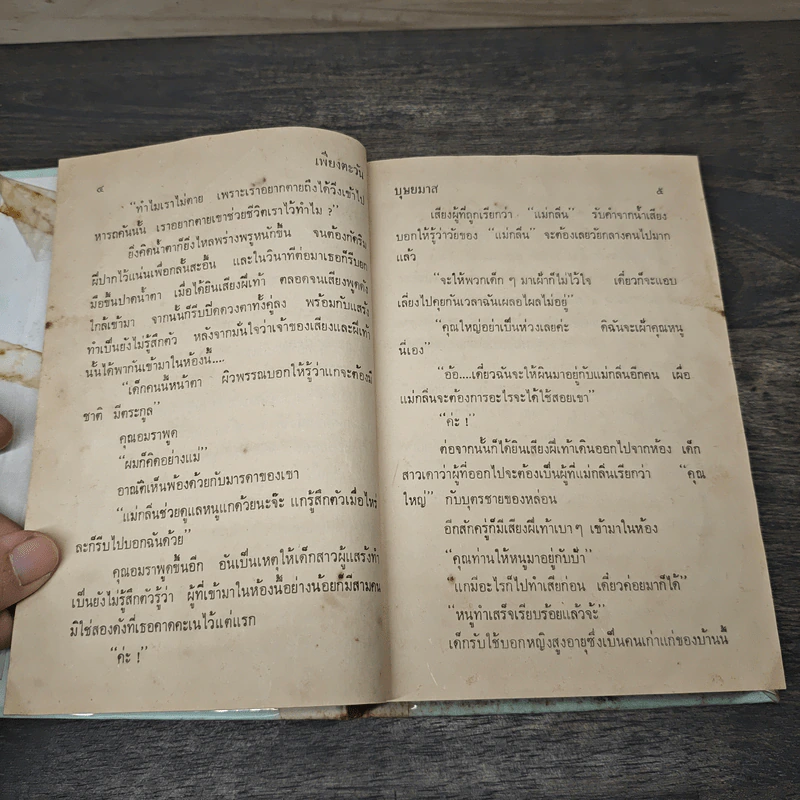 ๔
เพียงตะวัน
“ทำไมเราไม่ตาย เพราะเราอยากตายถึงได้วิ่งเข้าไป
หารถคันนั้น เราอยากตายเขาช่วยชีวิตเราไว้ทำไม ?”
ยิ่งคิดน้ำตาก็ยิ่งไหลพร่างพรูหนักขึ้น จนต้องกัดริม
ฝีปากไว้แน่นเพื่อกลั้นสะอื้น และในวินาทีต่อมาเธอก็รีบยก
มือขึ้นปาดน้ำตา เมื่อได้ยินเสียงฝีเท้า ตลอดจนเสียงพูดดัง
ใกล้เข้ามา จากนั้นก็รีบปิดดวงตาทั้งคู่ลง พร้อมกับแสร้ง
ทำเป็นยังไม่รู้สึกตัว หลังจากมั่นใจว่าเจ้าของเสียงและฝีเท้า
นั้นได้พากันเข้ามาในห้องนี้....
“เด็กคนนี้หน้าตา ผิวพรรณบอกให้รู้ว่าแกจะต้องมี
ชาติ มีตระกูล”
คุณอมราพูด
“ผมก็คิดอย่างแม่”
อาณัติเห็นพ้องด้วยกับมารดาของเขา
“แม่กลิ่นช่วยดูแลหนูแกด้วยนะจ๊ะ แกรู้สึกตัวเมื่อไหร่
ละก็รีบไปบอกฉันด้วย”
คุณอมราพูดขึ้นอีก อันเป็นเหตุให้เด็กสาวผู้แสร้งทำ
เป็นยังไม่รู้สึกตัวรู้ว่า ผู้ที่เข้ามาในห้องนี้อย่างน้อยก็มีสามคน
มิใช่สองดังที่เธอคาดคะเนไว้แต่แรก
“ค่ะ !”
บุษยมาส
๕
เสียงผู้ที่ถูกเรียกว่า “แม่กลิ่น” รับคำจากน้ำเสียง
บอกให้รู้ว่าวัยของ “แม่กลิ่น” จะต้องเลยวัยกลางคนไปมาก
แล้ว
“จะให้พวกเด็ก ๆ มาเฝ้าก็ไม่ไว้ใจ เดี๋ยวก็จะแอบ
เลี่ยงไปคุยกันเวลาฉันเผลอไผลไม่อยู่”
“คุณใหญ่อย่าเป็นห่วงเลยค่ะ ดิฉันจะเฝ้าคุณหนู
นี่เอง”
“อ้อ....เดี๋ยวฉันจะให้ผินมาอยู่กับแม่กลิ่นอีกคน เผื่อ
แม่กลิ่นจะต้องการอะไรจะได้ใช้สอยเขา”
“ค่ะ !”
ต่อจากนั้นก็ได้ยินเสียงฝีเท้าเดินออกไปจากห้อง เด็ก
สาวเดาว่าผู้ที่ออกไปจะต้องเป็นผู้ที่แม่กลิ่นเรียกว่า “คุณ
ใหญ่” กับบุตรชายของหล่อน
อีกสักครู่ก็มีเสียงฝีเท้าเบา ๆ เข้ามาในห้อง
“คุณท่านให้หนูมาอยู่กับป้า”
“แกมีอะไรก็ไปทำเสียก่อน เดี๋ยวค่อยมาก็ได้”
“หนูทำเสร็จเรียบร้อยแล้วจ้ะ”
เด็กรับใช้บอกหญิงสูงอายุซึ่งเป็นคนเก่าแก่ของบ้านนี้